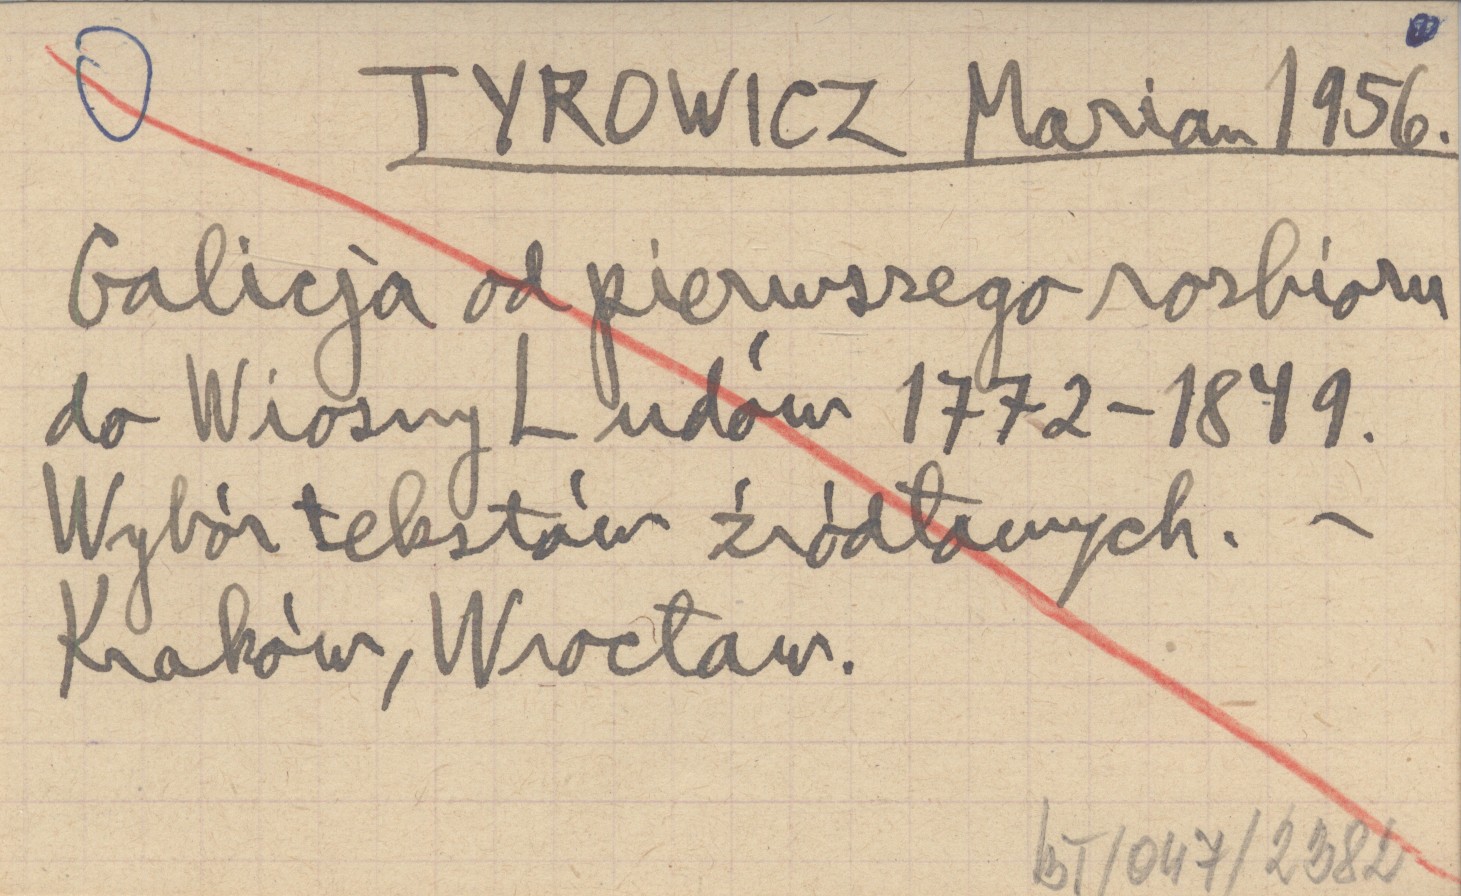 TYROWICZ Marian 1956.
Galicja od pierwszego rozbioru
do Wiosny Ludów 1772-1849.
Wybór tekstów źródłowych. -
Kraków, Wrocław.
BT/047/2382